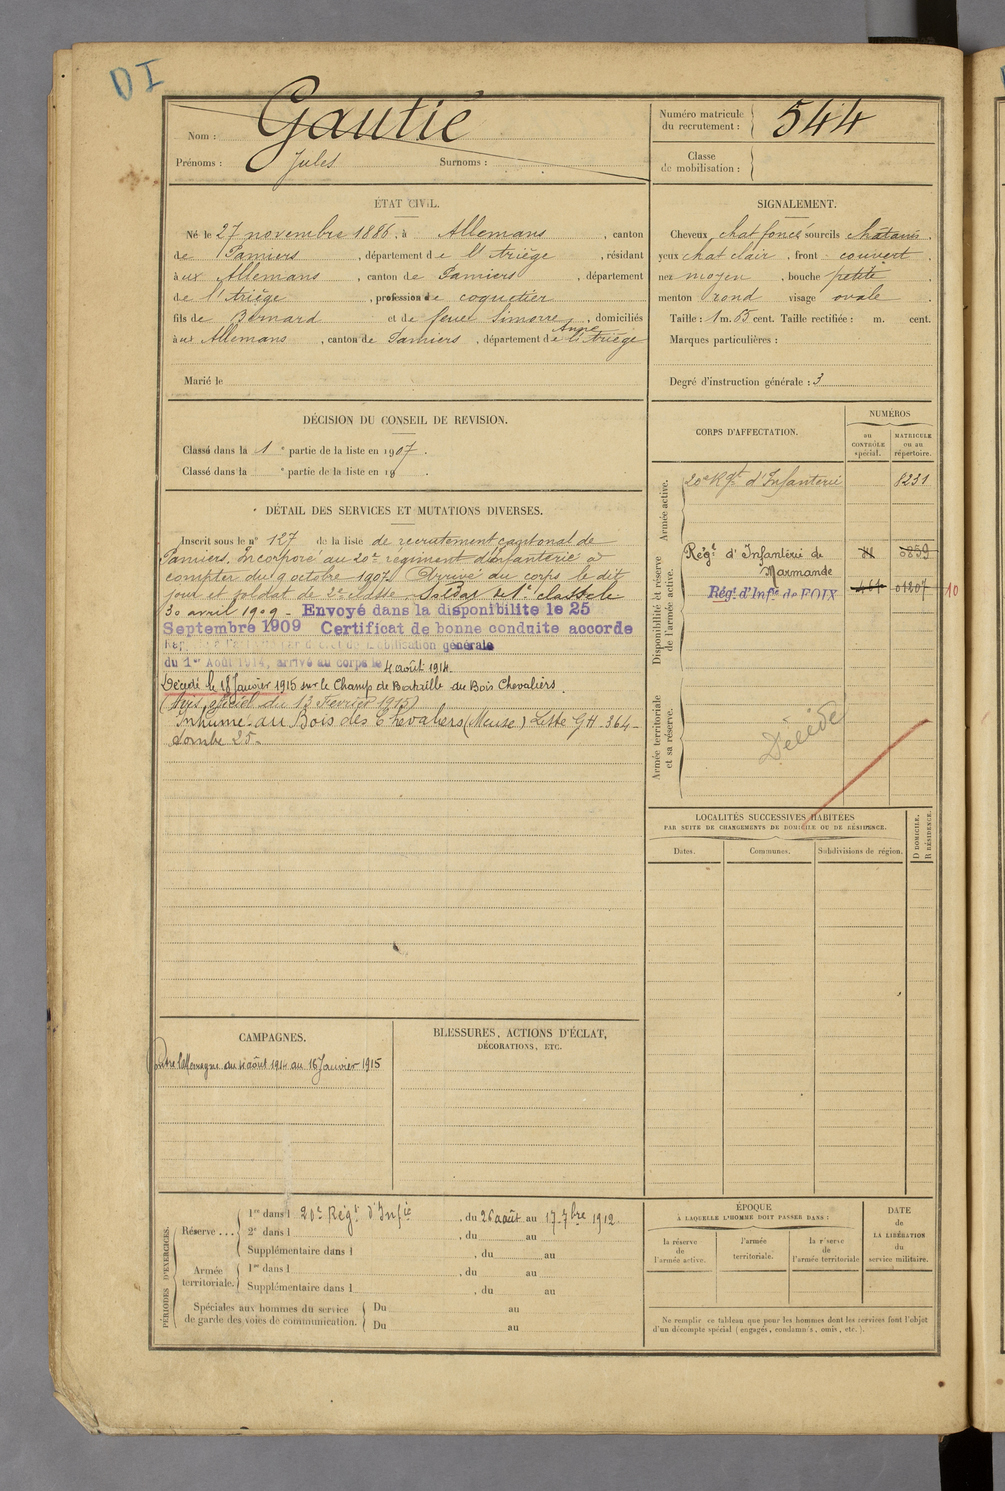 DI
Nom : Gautié
Prénoms : Jules Surnoms :
Numéro matricule du recrutement : 544
Classe de mobilisation :
ÉTAT CIVIL.
Né le 27 novembre 1886, à Allemans, canton
de Pamiers, département de l'Ariège, résidant
à ux Allemans, canton de Pamiers, département
de l'Ariège, profession de coquetier
fils de Bernard et de feue Simorre Anne, domiciliés
à ux Allemans, canton de Pamiers, département de l'Ariège
Marié le
SIGNALEMENT.
Cheveux chat foncé sourcils chatains.
yeux chat clair, front couvert,
nez moyen, bouche petite,
menton rond visage ovale.
Taille : 1 m. 65 cent. Taille rectifiée : m. cent.
Marques particulières :
Degré d'instruction générale : 3
DÉCISION DU CONSEIL DE REVISION.
Classé dans la 1e partie de la liste en 1907.
Classé dans la e partie de la liste en 19 .
CORPS D'AFFECTATION.
NUMÉROS
au CONTRÔLE spécial.
MATRICULE ou au répertoire.
Armée active.
20e Rgt d'Infanterie 8231
Disponibilité et réserve de l'armée active.
Régt d'Infanterie de 0859
Marmande
Régt d'Infie de FOIX 461 01207 10
Armée territoriale et sa réserve.
Décédé
DÉTAIL DES SERVICES ET MUTATIONS DIVERSES.
Inscrit sous le n° 127 de la liste de recrutement cantonal de
Pamiers. Incorporé au 20e régiment d'infanterie à
compter du 9 octobre 1907. Arrivé au corps le dit
jour et soldat de 2e classe. Soldat de 1e classe le
30 avril 1909 - Envoyé dans la disponibilite le 25
Septembre 1909 Certificat de bonne conduite accorde
mobilisation générale
du 1er Août 1914, arrivé au corps le 4 août 1914.
Décédé le 18 Janvier 1915 sur le Champ de Bataille du Bois Chevaliers.
(Avis officiel du 13 Fevrier 1915)
Inhumé au Bois des Chevaliers (Meuse) Liste GH-364-
Tombe 25-
LOCALITÉS SUCCESSIVES HABITÉES
PAR SUITE DE CHANGEMENTS DE DOMICILE OU DE RÉSIDENCE.
Dates. Communes. Subdivisions de région. D DOMICILE. R RÉSIDENCE.
CAMPAGNES.
Contre l'Allemagne du 4 août 1914 au 18 Janvier 1915
BLESSURES, ACTIONS D'ÉCLAT,
DÉCORATIONS, ETC.
PÉRIODES D'EXERCICES.
Réserve ...
1re dans l 20e Régt d'Infie, du 26 août au 17-7bre 1912.
2e dans l , du au
Supplémentaire dans l , du au
Armée territoriale.
1re dans l , du au
Supplémentaire dans l , du au
Spéciales aux hommes du service
de garde des voies de communication.
Du au
Du au
ÉPOQUE
À LAQUELLE L'HOMME DOIT PASSER DANS :
la réserve de l'armée active.
l'armée territoriale.
la réserve de l'armée territoriale
DATE
de
LA LIBÉRATION
du
service militaire.
Ne remplir ce tableau que pour les hommes dont les services font l'objet
d'un décompte spécial (engagés, condamnés, omis, etc.).